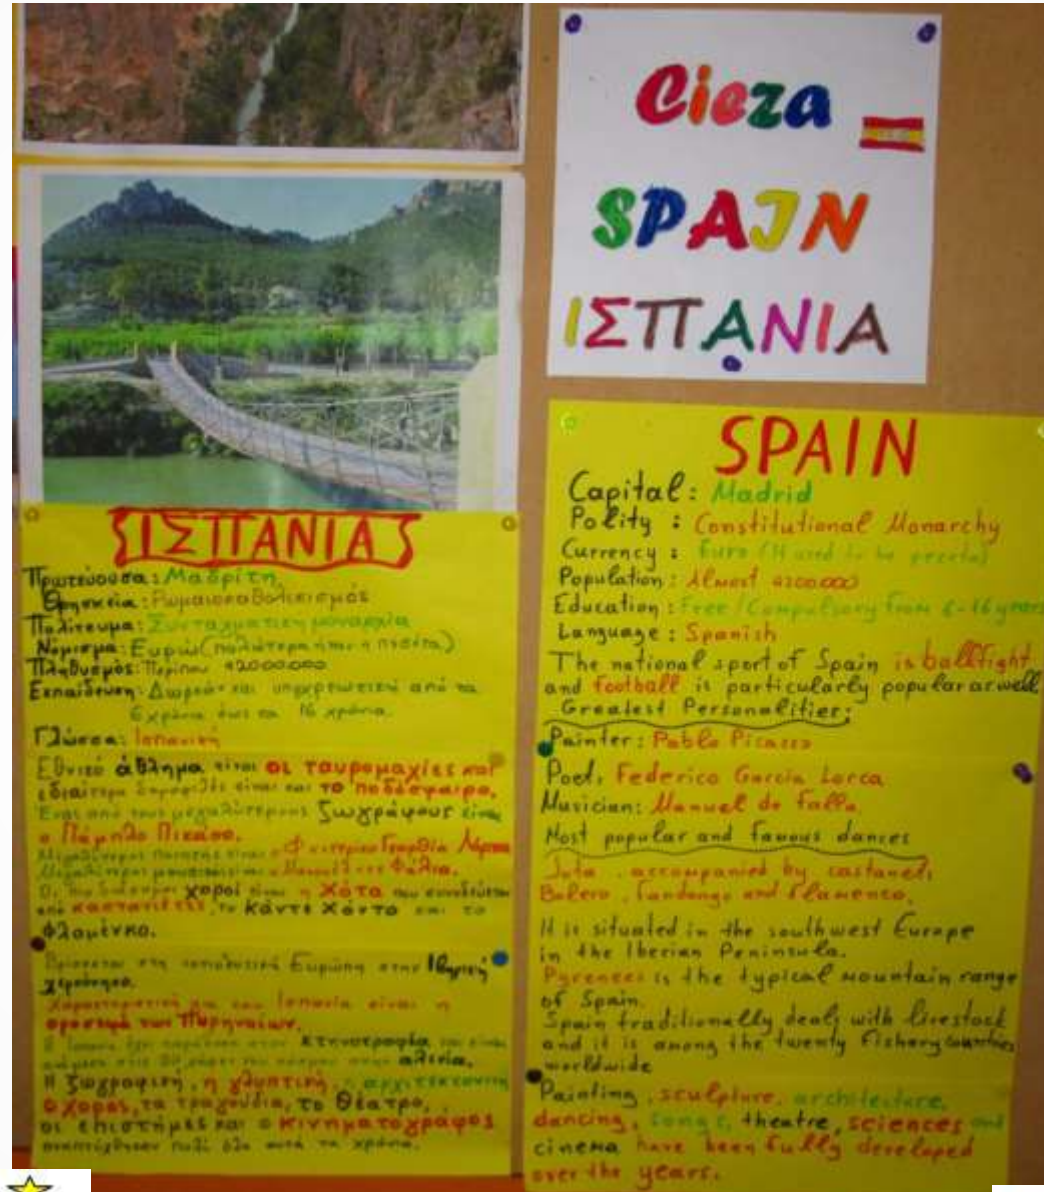 Cieza
SPAIN
ΙΣΠΑΝΙΑ
ΙΣΠΑΝΙΑ
Πρωτεύουσα: Μαδρίτη
Θρησκεία: Ρωμαιοκαθολικισμός
Πολίτευμα: Συνταγματική μοναρχία
Νόμισμα: Ευρώ (παλιότερα ήταν η πεσέτα)
Πληθυσμός: Περίπου 42000.000
Εκπαίδευση: Δωρεάν και υποχρεωτική από τα
6 χρόνια έως τα 16 χρόνια.
Γλώσσα: Ισπανική
Εθνικό άθλημα είναι οι ταυρομαχίες και
ιδιαίτερα δημοφιλές είναι και το ποδόσφαιρο.
Ένας από τους μεγαλύτερους ζωγράφους είναι
ο Πάμπλο Πικάσο.
Μεγαλύτερος ποιητής είναι ο Φ Γκαρθία Λόρκα
Μεγαλύτερος μουσικός είναι ο Μανουέλ ντε Φάλια.
Οι πιο διάσημοι χοροί είναι η Χότα που συνοδεύεται
από καστανιέτες, το κάντε χόντο και το
φλαμένκο.
Βρίσκεται στη νοτιοδυτική Ευρώπη στην Ιβηρική
χερσόνησο.
Χαρακτηριστική για την Ισπανία είναι η
οροσειρά των Πυρηναίων.
Η Ισπανία έχει παράδοση στην κτηνοτροφία και είναι
ανάμεσα στις 20 χώρες του κόσμου στην αλιεία.
Η ζωγραφική, η γλυπτική, η αρχιτεκτονική
ο χορός, τα τραγούδια, το θέατρο,
οι επιστήμες και ο κινηματογράφος
αναπτύχθηκαν πολύ όλα αυτά τα χρόνια.
SPAIN
Capital: Madrid
Polity: Constitutional Monarchy
Currency: Euro (It used to be peseta)
Population: Almost 4200.000
Education: Free/Compulsory from 6-16 years
Language: Spanish
The national sport of Spain is bullfight
and football is particularly popular as well.
Greatest Personalities:
Painter: Pablo Picasso
Poet: Federico Garcia Lorca
Musician: Manuel de Falla
Most popular and famous dances
Jota, accompanied by castanets
Bolero, Fandango and Flamenco.
It is situated in the southwest Europe
in the Iberian Peninsula.
Pyrenees is the typical mountain range
of Spain.
Spain traditionally deals with livestock
and it is among the twenty fishery countries
worldwide
Painting, sculpture, architecture,
dancing, songs, theatre, sciences and
cinema have been fully developed
over the years.